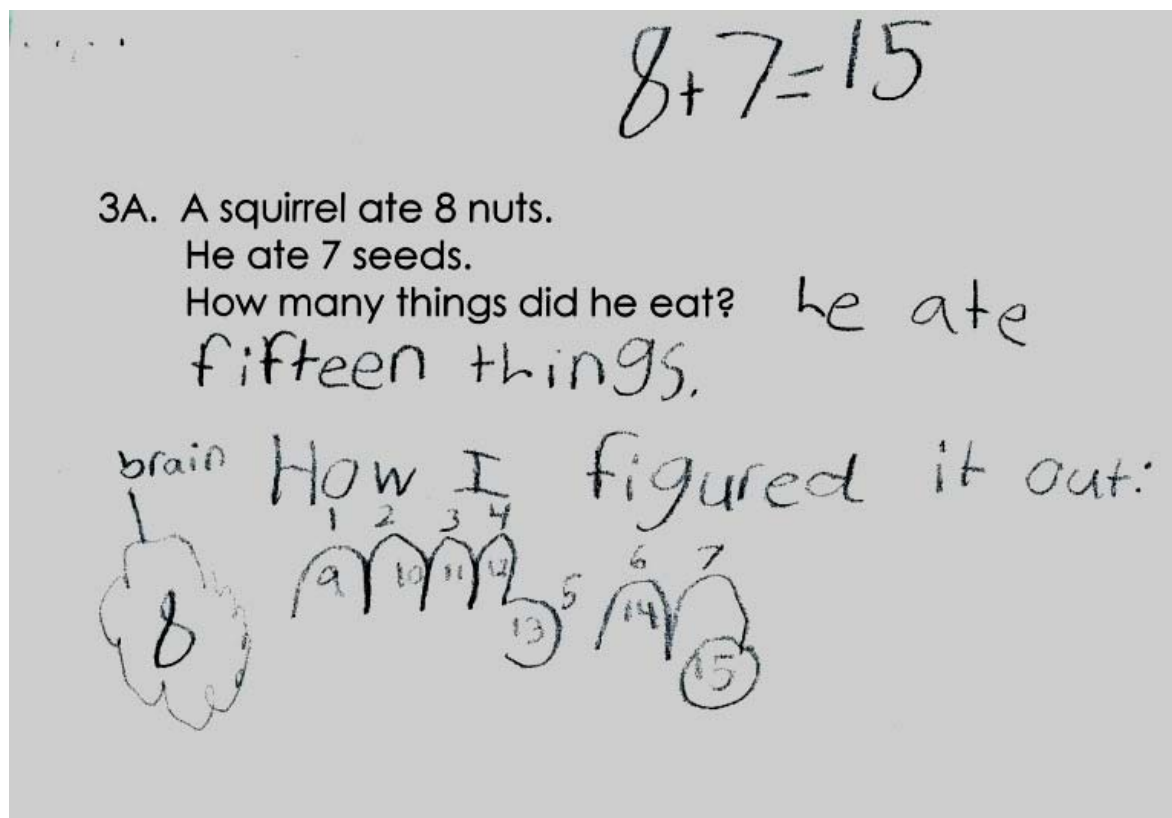 8+7=15
3A. A squirrel ate 8 nuts.
He ate 7 seeds.
How many things did he eat? he ate
fifteen things.
brain How I figured it out:
1 2 3 4
6 7
9 10 11 12 5 14
8 13 15